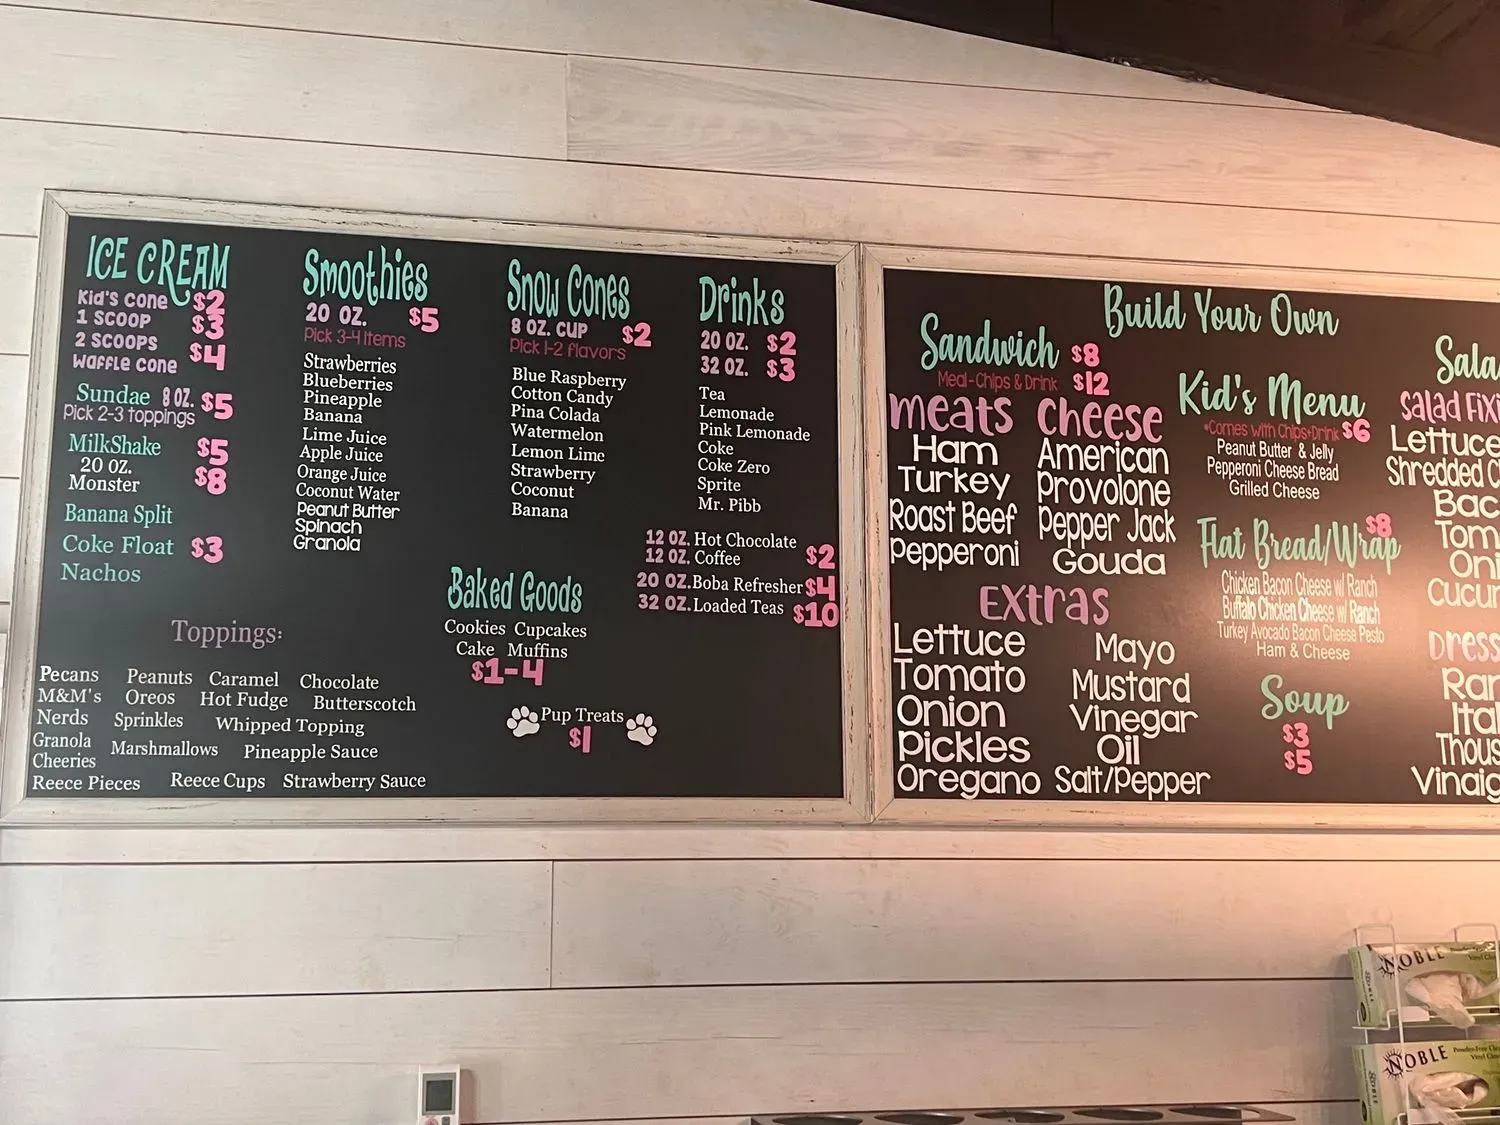 ICE CREAM
Kid's cone $2
1 SCOOP $3
2 SCOOPS
Waffle cone $4
Sundae 8 OZ. $5
Pick 2-3 toppings
MilkShake $5
20 OZ.
Monster $8
Banana Split
Coke Float $3
Nachos
Smoothies
20 OZ. $5
Pick 3-4 Items
Strawberries
Blueberries
Pineapple
Banana
Lime Juice
Apple Juice
Orange Juice
Coconut Water
Peanut Butter
Spinach
Granola
Snow Cones
8 OZ. CUP $2
Pick 1-2 flavors
Blue Raspberry
Cotton Candy
Pina Colada
Watermelon
Lemon Lime
Strawberry
Coconut
Banana
Drinks
20 OZ. $2
32 OZ. $3
Tea
Lemonade
Pink Lemonade
Coke
Coke Zero
Sprite
Mr. Pibb
12 OZ. Hot Chocolate
12 OZ. Coffee $2
20 OZ. Boba Refresher $4
32 OZ. Loaded Teas $10
Baked Goods
Cookies Cupcakes
Cake Muffins
$1-4
Pup Treats
$1
Toppings:
Pecans Peanuts Caramel Chocolate
M&M's Oreos Hot Fudge Butterscotch
Nerds Sprinkles Whipped Topping
Granola Marshmallows Pineapple Sauce
Cheeries
Reece Pieces Reece Cups Strawberry Sauce
Build Your Own
Sandwich $8
Meal-Chips & Drink $12
meats
Ham
Turkey
Roast Beef
Pepperoni
Cheese
American
Provolone
Pepper Jack
Gouda
Extras
Lettuce Mayo
Tomato Mustard
Onion Vinegar
Pickles Oil
Oregano Salt/Pepper
Kid's Menu
*Comes with Chips+Drink $6
Peanut Butter & Jelly
Pepperoni Cheese Bread
Grilled Cheese
Flat Bread/Wrap $8
Chicken Bacon Cheese w/ Ranch
Buffalo Chicken Cheese w/ Ranch
Turkey Avocado Bacon Cheese Pesto
Ham & Cheese
Soup
$3
$5
Sala
Salad Fixi
Lettuce
Shredded C
Bac
Tom
Oni
Cucum
Dress
Ran
Ital
Thous
Vinaig
NOBLE
NOBLE